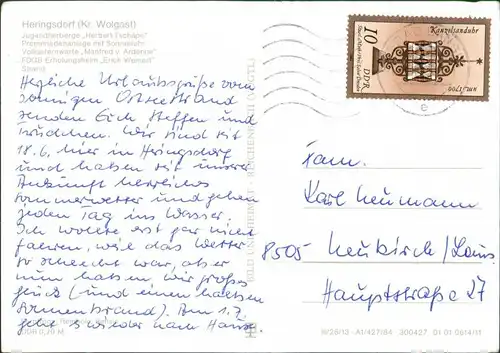 Heringsdorf (Kr. Wolgast)
Jugendherberge „Herbert Tschäpe“
Promenadenanlage mit Sonnenuhr
Volkssternwarte „Manfred v. Ardenne“
FDGB-Erholungsheim „Erich Weinert“
Strand
Herzliche Urlaubsgrüße vom
sonnigen Ostseestrand
senden Euch Steffen und
Wir sind seit
18.6. hier in Heringsdorf
und haben seit unserer
Ankunft herrliches
Sommerwetter und gehen
jeden Tag ins Wasser.
Ich wollte erst gar nicht
fahren, weil das Wetter
so schlecht war, aber
nun hatten wir großes
Glück (und einen halben
Sonnenbrand). Am 1.7.
geht es wieder nach Hause
BILD UND HEIMAT REICHENBACH (VOGTL)
10
DDR
Kanzelsanduhr
um 1700
Fam.
Karl Neumann
8505 Neukirch/Laus
Hauptstraße 27
A1/427/84 300427 01 01 0514/11